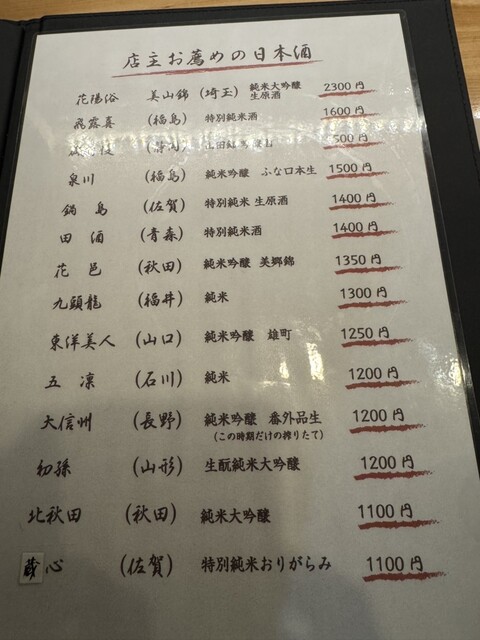 店主お薦めの日本酒
花陽浴 美山錦 (埼玉) 純米大吟醸 生原酒 2300円
飛露喜 (福島) 特別純米酒 1600円
500円
泉川 (福島) 純米吟醸 ふな口本生 1500円
鍋島 (佐賀) 特別純米 生原酒 1400円
田酒 (青森) 特別純米酒 1400円
花邑 (秋田) 純米吟醸 美郷錦 1350円
九頭龍 (福井) 純米 1300円
東洋美人 (山口) 純米吟醸 雄町 1250円
五凛 (石川) 純米 1200円
大信州 (長野) 純米吟醸 番外品生 1200円
(この時期だけの搾りたて)
初孫 (山形) 生酛純米大吟醸 1200円
北秋田 (秋田) 純米大吟醸 1100円
蔵心 (佐賀) 特別純米おりがらみ 1100円